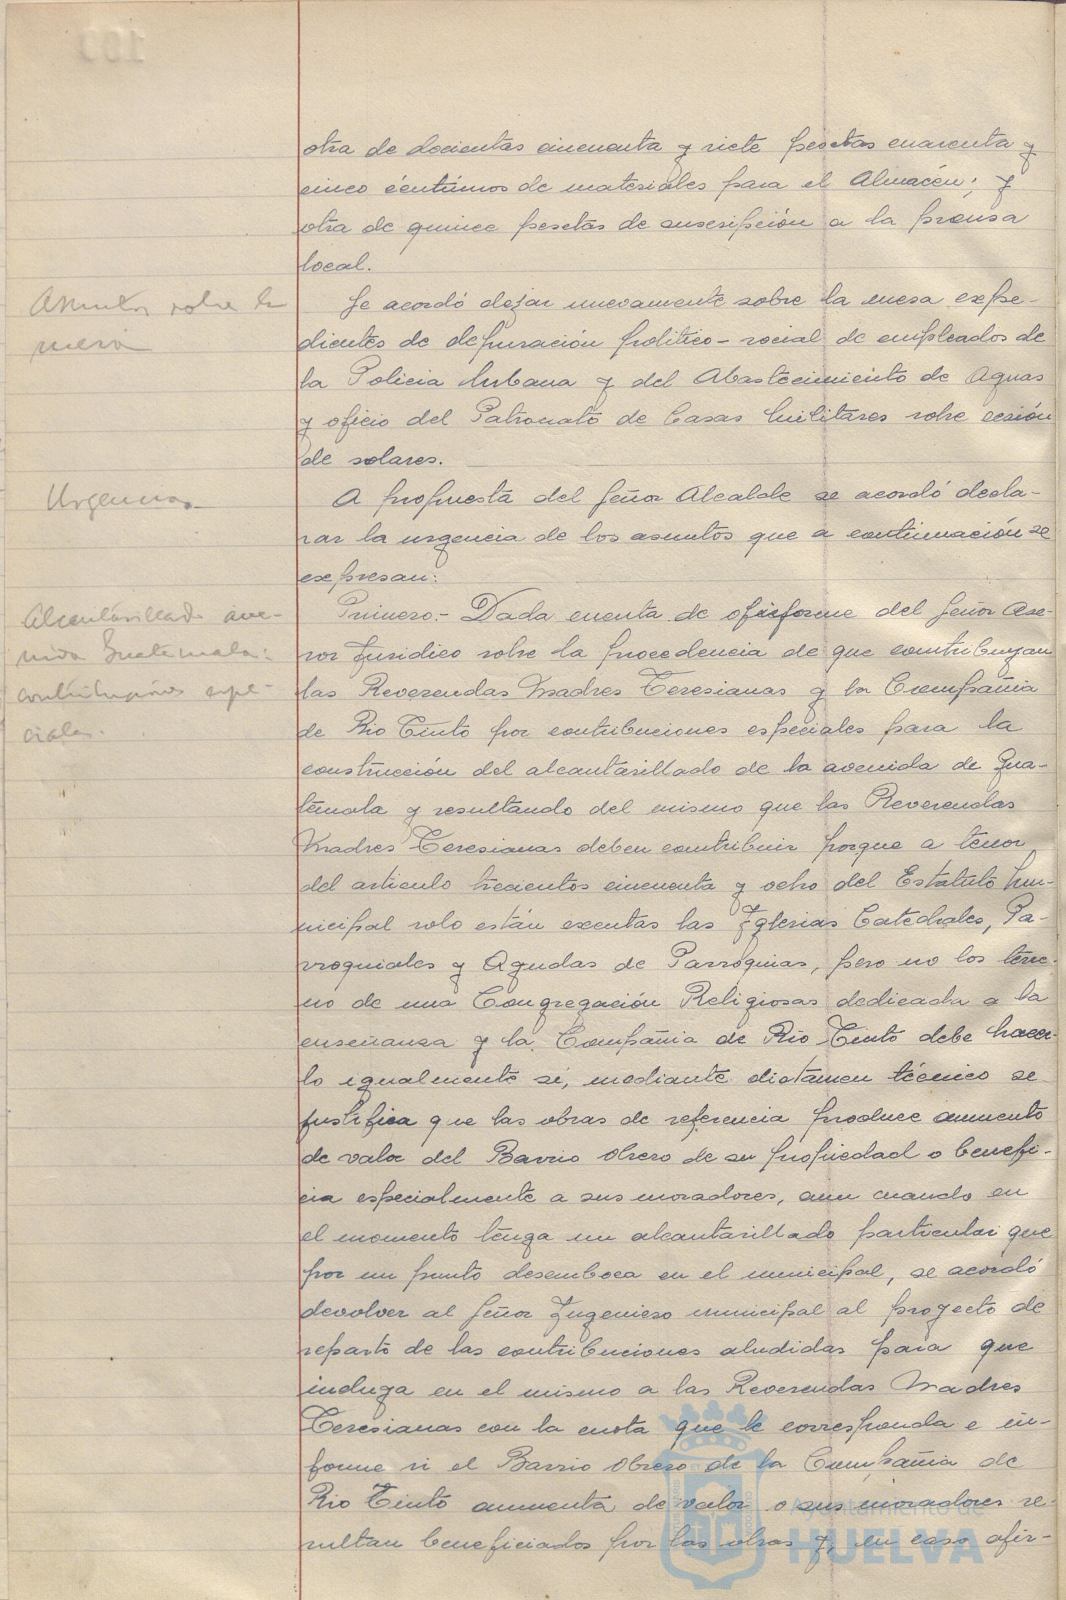 otra de docientas cincuenta y siete pesetas cuarenta y
cinco céntimos de materiales para el Almacén; y
otra de quince pesetas de suscripción a la prensa
local.
Asuntos sobre la
mesa
Se acordó dejar nuevamente sobre la mesa expe-
dientes de depuración político-social de empleados de
la Policia Urbana y del Abastecimiento de Aguas
y oficio del Patronato de Casas Militares sobre cesión
de solares.
Urgencias
A propuesta del Señor Alcalde se acordó decla-
rar la urgencia de los asuntos que a continuación se
expresan:
Alcantarillado ave-
nida Guatemala:
contribuciones espe-
ciales.
Primero.- Dada cuenta de informe del Señor Ase-
sor Jurídico sobre la procedencia de que contribuyan
las Reverendas Madres Teresianas y la Compañia
de Rio Tinto por contribuciones especiales para la
construcción del alcantarillado de la avenida de Gua-
temala y resultando del mismo que las Reverendas
Madres Teresianas deben contribuir porque a tenor
del articulo trecientos cincuenta y ocho del Estatuto Mu-
nicipal solo están exentas las Iglesias Catedrales, Pa-
rroquiales y Ayudas de Parroquias, pero no los terre-
no de una Congregación Religiosas dedicada a la
enseñanza y la Compañia de Rio Tinto debe hacer-
lo igualmente si, mediante dictamen técnico se
justifica que las obras de referencia produce aumento
de valor del Barrio Obrero de su propiedad o benefi-
cia especialmente a sus moradores, aun cuando en
el momento tenga un alcantarillado particular que
por un punto desemboca en el municipal, se acordó
devolver al Señor Ingeniero municipal al proyecto de
reparto de las contribuciones aludidas para que
incluya en el mismo a las Reverendas Madres
Teresianas con la cuota que le corresponda e in-
forme si el Barrio Obrero de la Compañia de
Rio Tinto aumenta de valor o sus moradores re-
sultan beneficiados por las obras y, en caso afir-
Ayuntamiento de
HUELVA